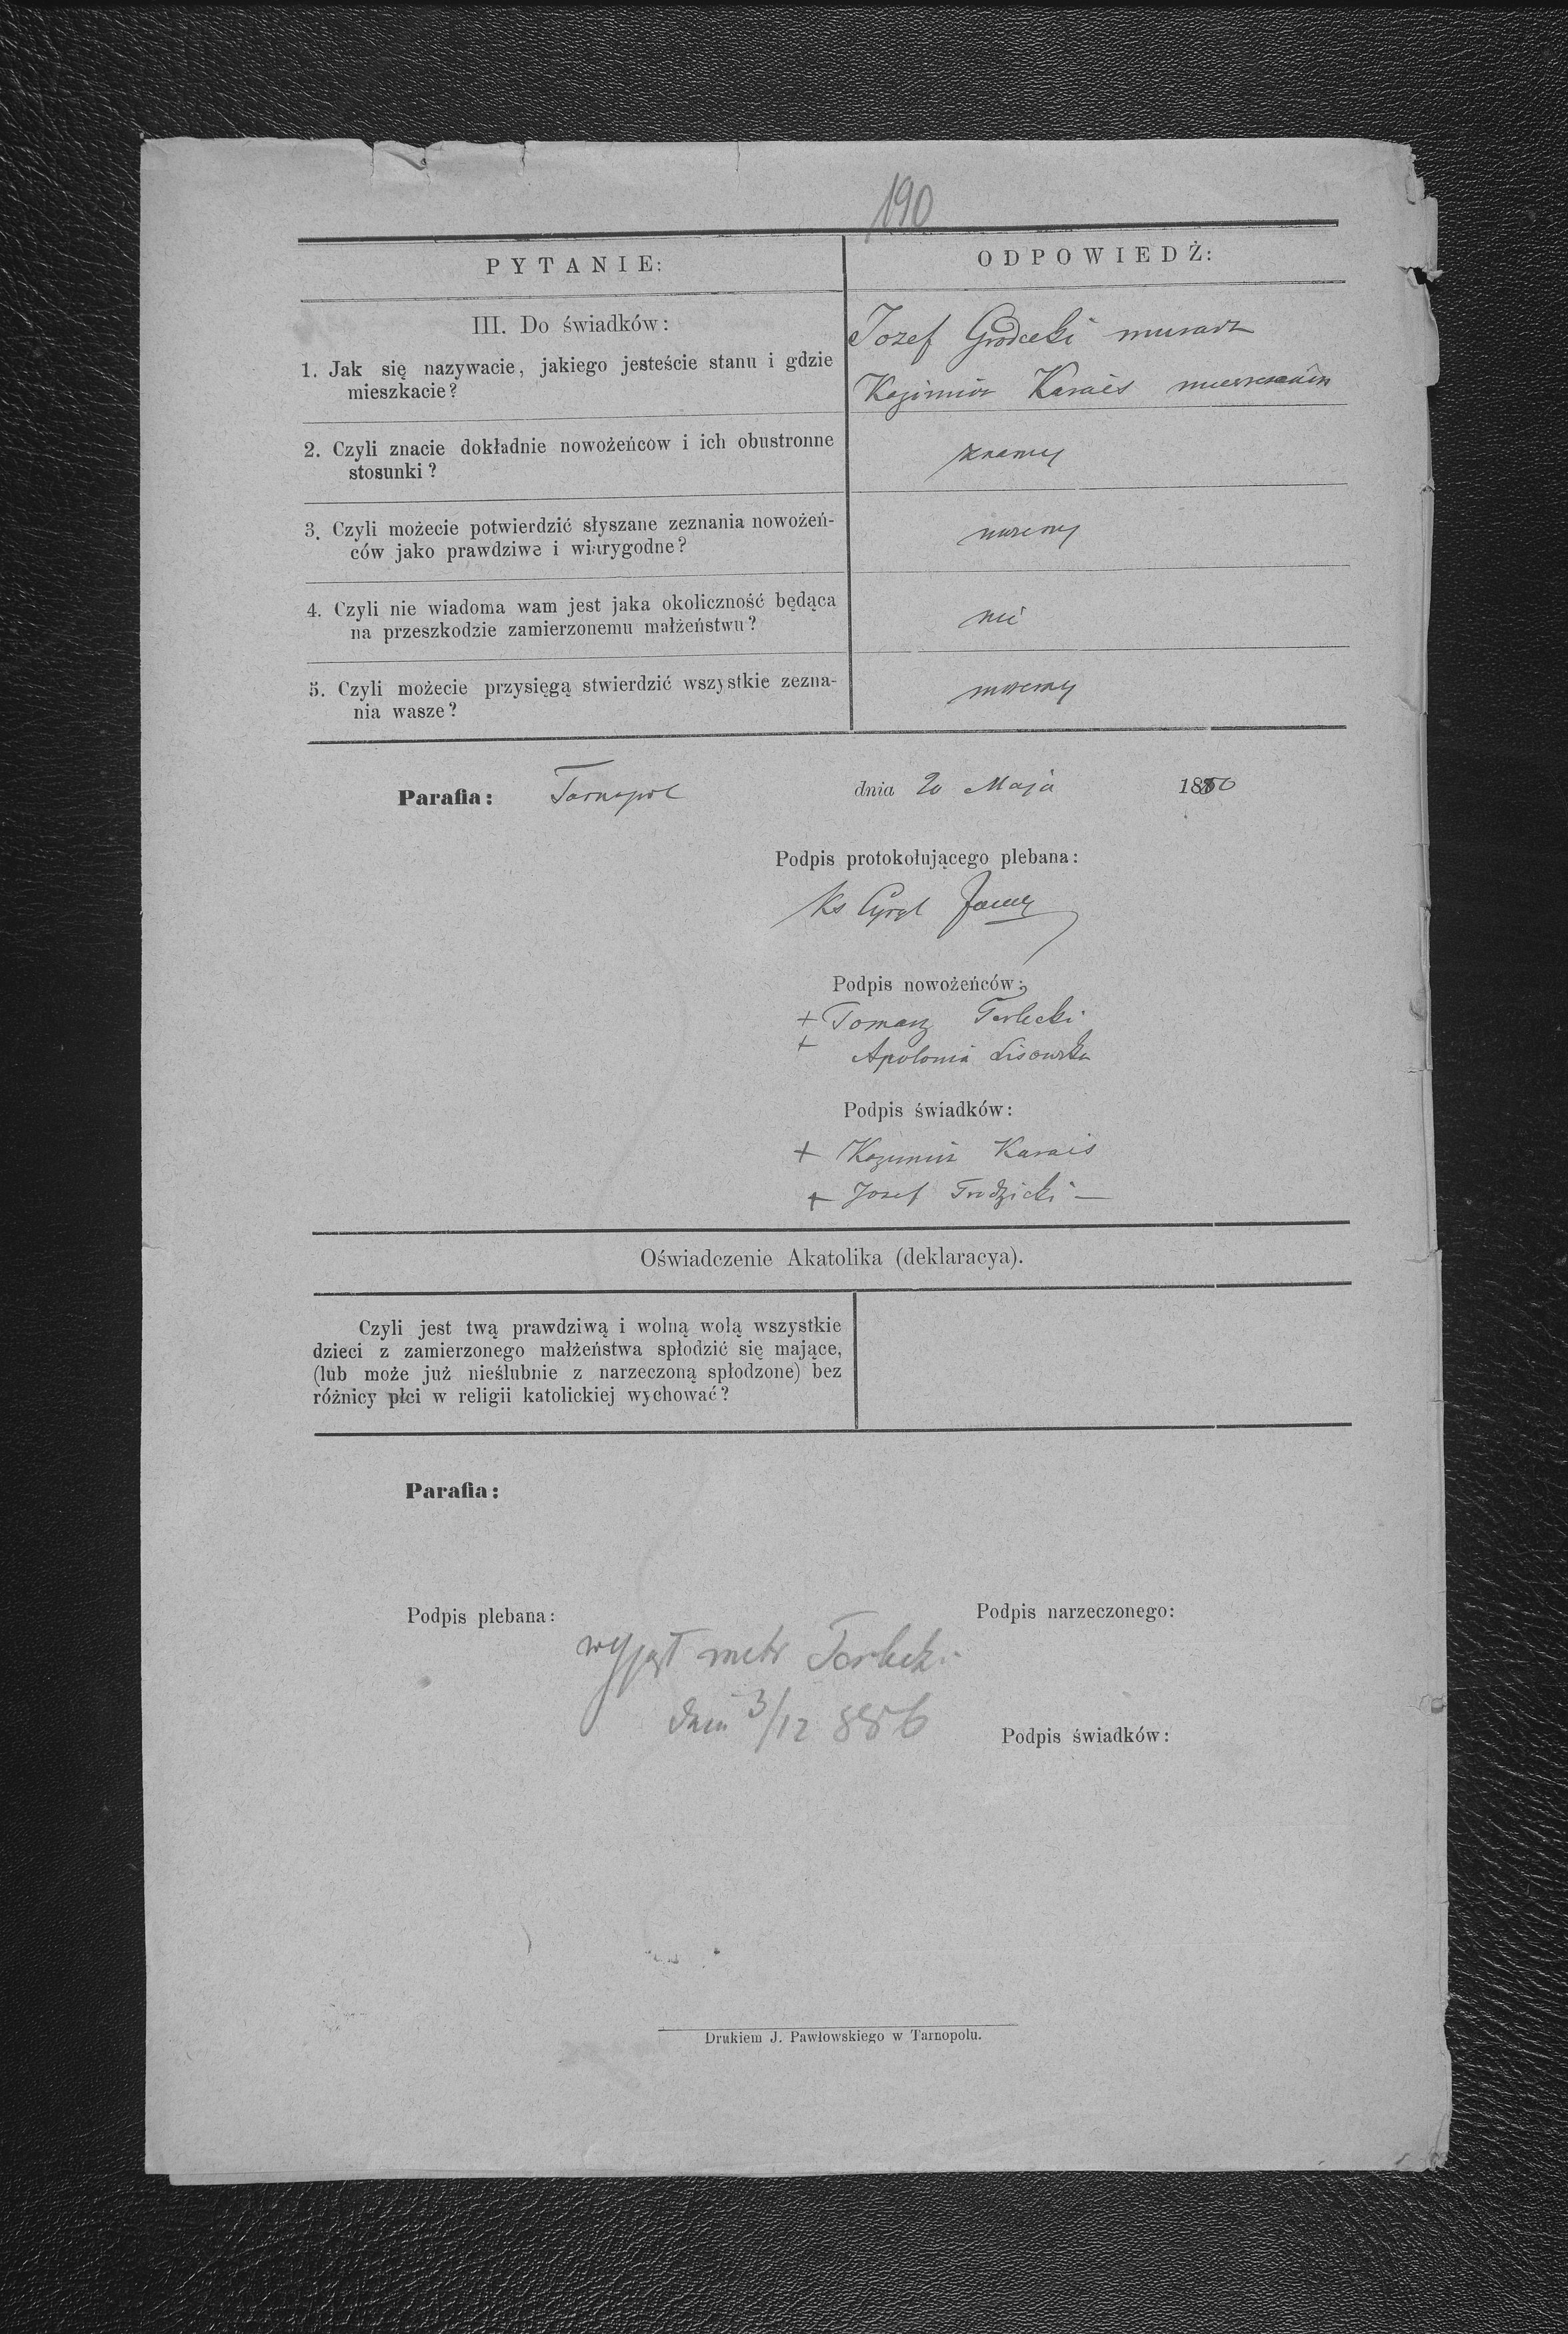 190
PYTANIE:
ODPOWIEDŹ:
III. Do świadków:
1. Jak się nazywacie, jakiego jesteście stanu i gdzie
mieszkacie?
Jozef Grodecki murarz
Kazimierz Karais mieszczanin
2. Czyli znacie dokładnie nowożeńców i ich obustronne
stosunki?
znamy
3. Czyli możecie potwierdzić słyszane zeznania nowożeń-
ców jako prawdziwe i wiarygodne?
możemy
4. Czyli nie wiadoma wam jest jaka okoliczność będąca
na przeszkodzie zamierzonemu małżeństwu?
nie
5. Czyli możecie przysięgą stwierdzić wszystkie zezna-
nia wasze?
możemy
Parafia: Tarnopol dnia 20 Maja 1880
Podpis protokołującego plebana:
Ks Cyryl
Podpis nowożeńców:
+ Tomasz Terlecki
+ Apolonia Lisowska
Podpis świadków:
+ Kazimierz Karais
+ Jozef
Oświadczenie Akatolika (deklaracya).
Czyli jest twą prawdziwą i wolną wolą wszystkie
dzieci z zamierzonego małżeństwa spłodzić się mające,
(lub może już nieślubnie z narzeczoną spłodzone) bez
różnicy płci w religii katolickiej wychować?
Parafia:
Podpis plebana:
Podpis narzeczonego:
wyjął metr Terlecki
dnia 3/12 886
Podpis świadków:
Drukiem J. Pawłowskiego w Tarnopolu.